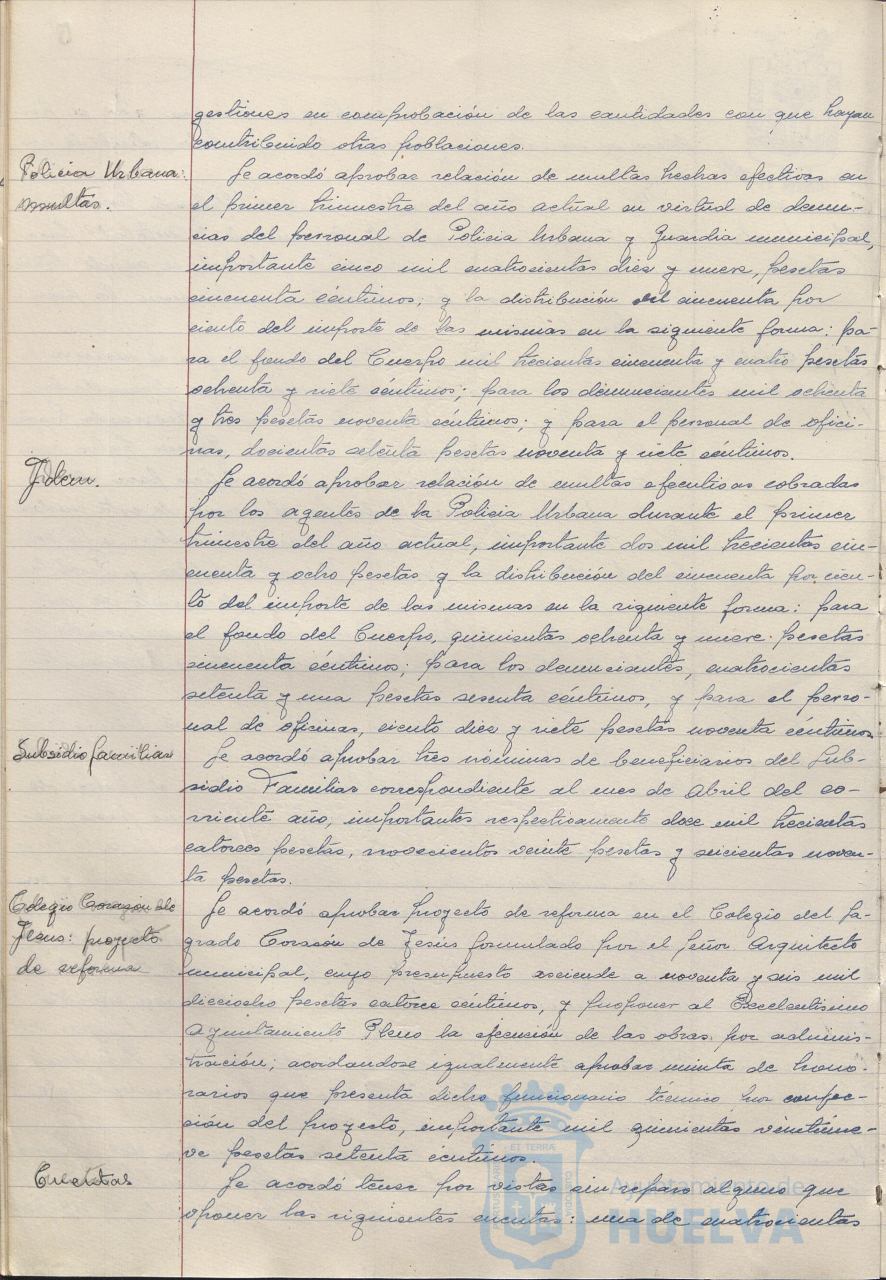 gestiones en comprobación de las cantidades con que hayan
contribuido otras poblaciones.
Policia Urbana:
multas.
Se acordó aprobar relación de multas hechas efectivas en
el primer trimestre del año actual en virtud de denun-
cias del personal de Policia Urbana y Guardia municipal,
importante cinco mil cuatrocientas diez y nueve, pesetas
cincuenta céntimos; y la distribución del cincuenta por
ciento del importe de las mismas en la siguiente forma: pa-
ra el fondo del Cuerpo mil trecientas cincuenta y cuatro pesetas
ochenta y siete céntimos; para los denunciantes mil ochenta
y tres pesetas noventa céntimos; y para el personal de ofici-
nas, docientas setenta pesetas noventa y siete céntimos.
Idem.
Se acordó aprobar relación de multas ejecutivas cobradas
por los agentes de la Policia Urbana durante el primer
trimestre del año actual, importante dos mil trecientas cin-
cuenta y ocho pesetas y la distribución del cincuenta por cien-
to del importe de las mismas en la siguiente forma: para
el fondo del Cuerpo, quinientas ochenta y nueve pesetas
cincuenta céntimos; para los denunciantes, cuatrocientas
setenta y una pesetas sesenta céntimos, y para el perso-
nal de oficinas, ciento diez y siete pesetas noventa céntimos
Subsidio familiar
Se acordó aprobar tres nóminas de beneficiarios del Sub-
sidio Familiar correspondiente al mes de Abril del co-
rriente año, importantes respectivamente doce mil trecientas
catorces pesetas, novecientos veinte pesetas y seicientas noven-
ta pesetas.
Colegio Corazón de
Jesus: proyecto
de reforma
Se acordó aprobar proyecto de reforma en el Colegio del Sa-
grado Corazón de Jesús formulado por el Señor Arquitecto
municipal, cuyo presupuesto asciende a noventa y seis mil
dieciocho pesetas catorce céntimos, y proponer al Excelentísimo
Ayuntamiento Pleno la ejecución de las obras por adminis-
tración; acordandose igualmente aprobar minuta de hono-
rarios que presenta dicho funcionario técnico por confec-
ción del proyecto, importante mil quinientas veintinue-
ve pesetas setenta céntimos.
Cuentas
Se acordó tener por vistas sin reparo alguno que
oponer las siguientes cuentas: una de cuatrocientas
ET TERRÆ
Ayuntamiento de
HUELVA